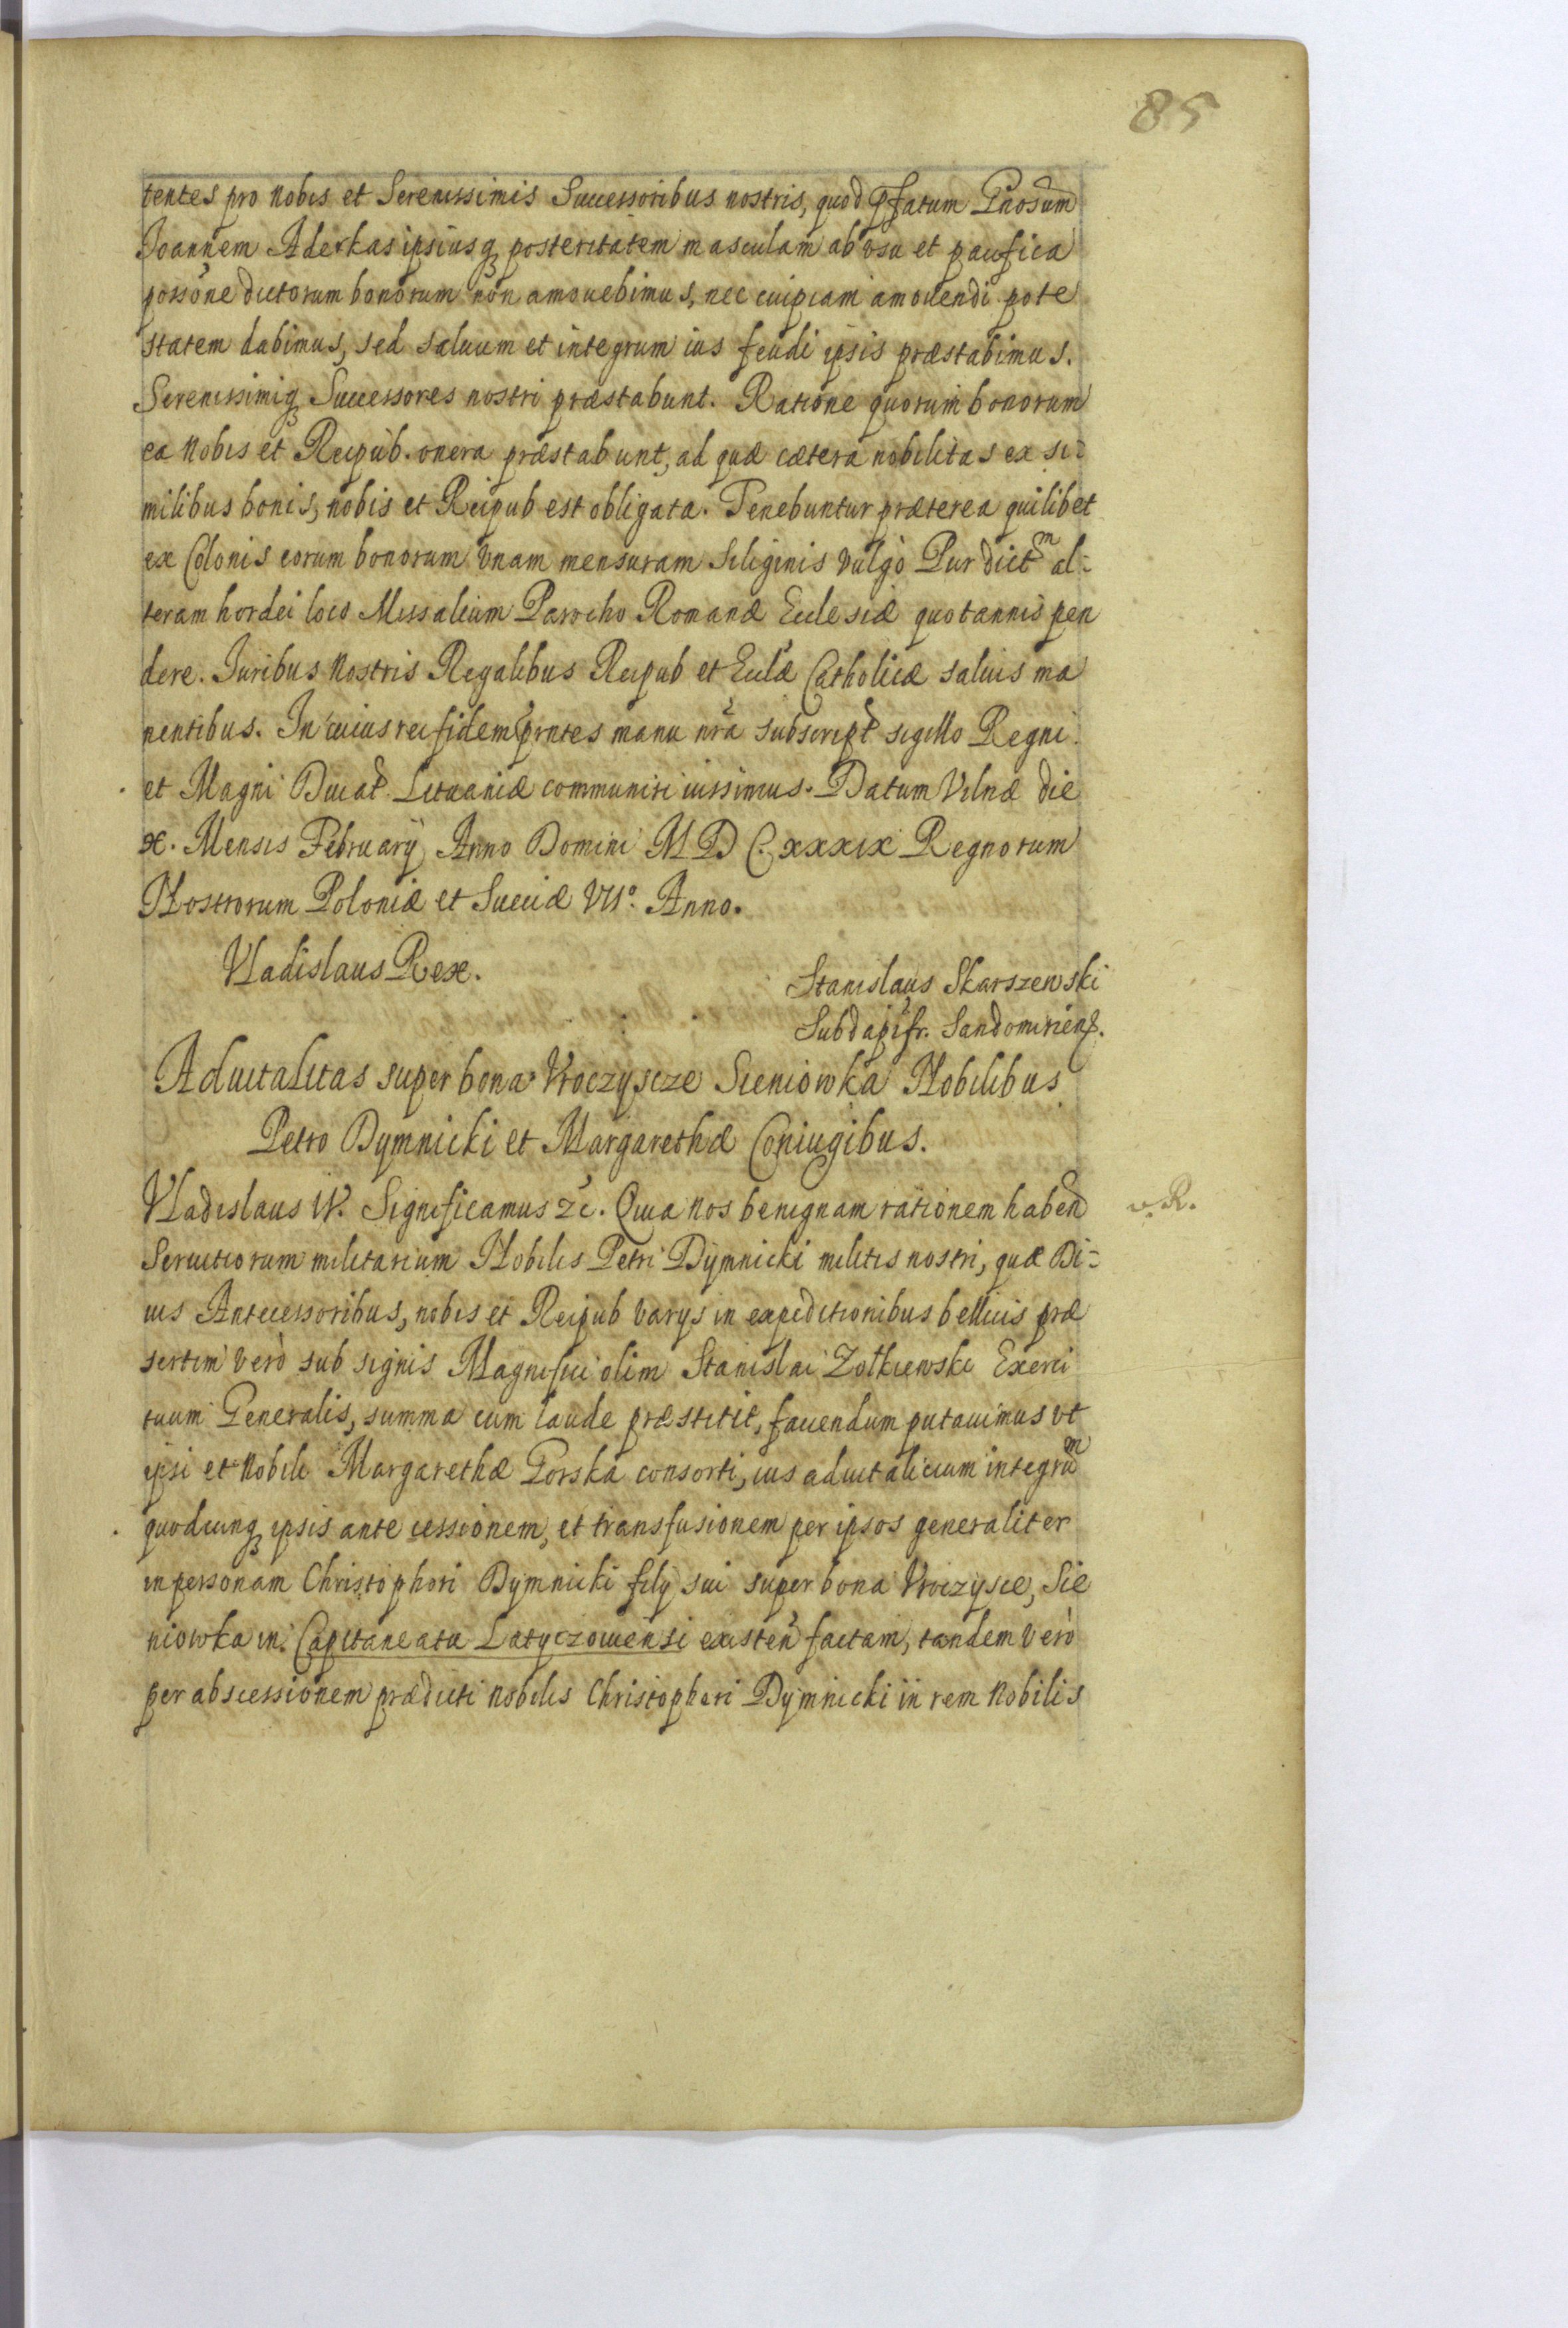 85
tentes pro nobis et Serenissimis Successoribus nostris, quod pfatum Gnosum
Joannem Aderkas ipsiusq posteritatem masculam ab vsu et pacifica
possone dictorum bonorum non amouebimus, nec cuipiam amouendi pote
statem dabimus, sed saluum et integrum ius feudi ipsis præstabimus.
Serenissimiq Successores nostri præstabunt. Ratione quorum bonorum
ea nobis et Reipub. onera præstabunt, ad quæ cætera nobilitas ex si=
milibus bonis, nobis et Reipub est obligata. Tenebuntur præterea quilibet
ex Colonis eorum bonorum vnam mensuram siliginis vulgò Pur dictm al=
teram hordei loco Missalium Parocho Romanæ Ecclesiæ quotannis pen
dere. Juribus Nostris Regalibus Reipub et Ecclæ Catholicæ saluis ma
nentibus. In cuius rei fidem prntes manu nra subscript sigillo Regni
et Magni Ducat Lituaniæ communiri iussimus. Datum Vilnæ die
x. Mensis February Anno Domini M D C. xxxix Regnorum
Nostrorum Poloniæ et Sueciæ VIIº. Anno.
Vladislaus Rex.
Stanislaus Skarszewski
Subdapifr. Sandomiriens.
Aduitalitas super bona Vroczyscze Sieniowka Nobilibus
Petro Dymnicki et Margarethæ Coniugibus.
Vladislaus IV. Significamus &c. Quia nos benignam rationem habend
v. R.
Seruitiorum militarium Nobilis Petri Dymnicki militis nostri, quæ Di=
uis Antecessoribus, nobis et Reipub varys in expeditionibus bellicis præ
sertim verò sub signis Magnifici olim Stanislai Zolkiewski Exerci
tuum Generalis, summa cum laude præstitit, fauendum putauimus vt
ipsi et Nobili Margarethæ Gorska consorti, ius aduitalicium integrum
quodcunq ipsis ante cessionem, et transfusionem per ipsos generaliter
in personam Christophori Dymnicki fily sui super bona Vroczysce, Sie
niowka in Capitaneatu Latyczouiensi existen factam, tandem verò
per abscessionem prædicti Nobilis Christopheri Dymnicki in rem Nobilis